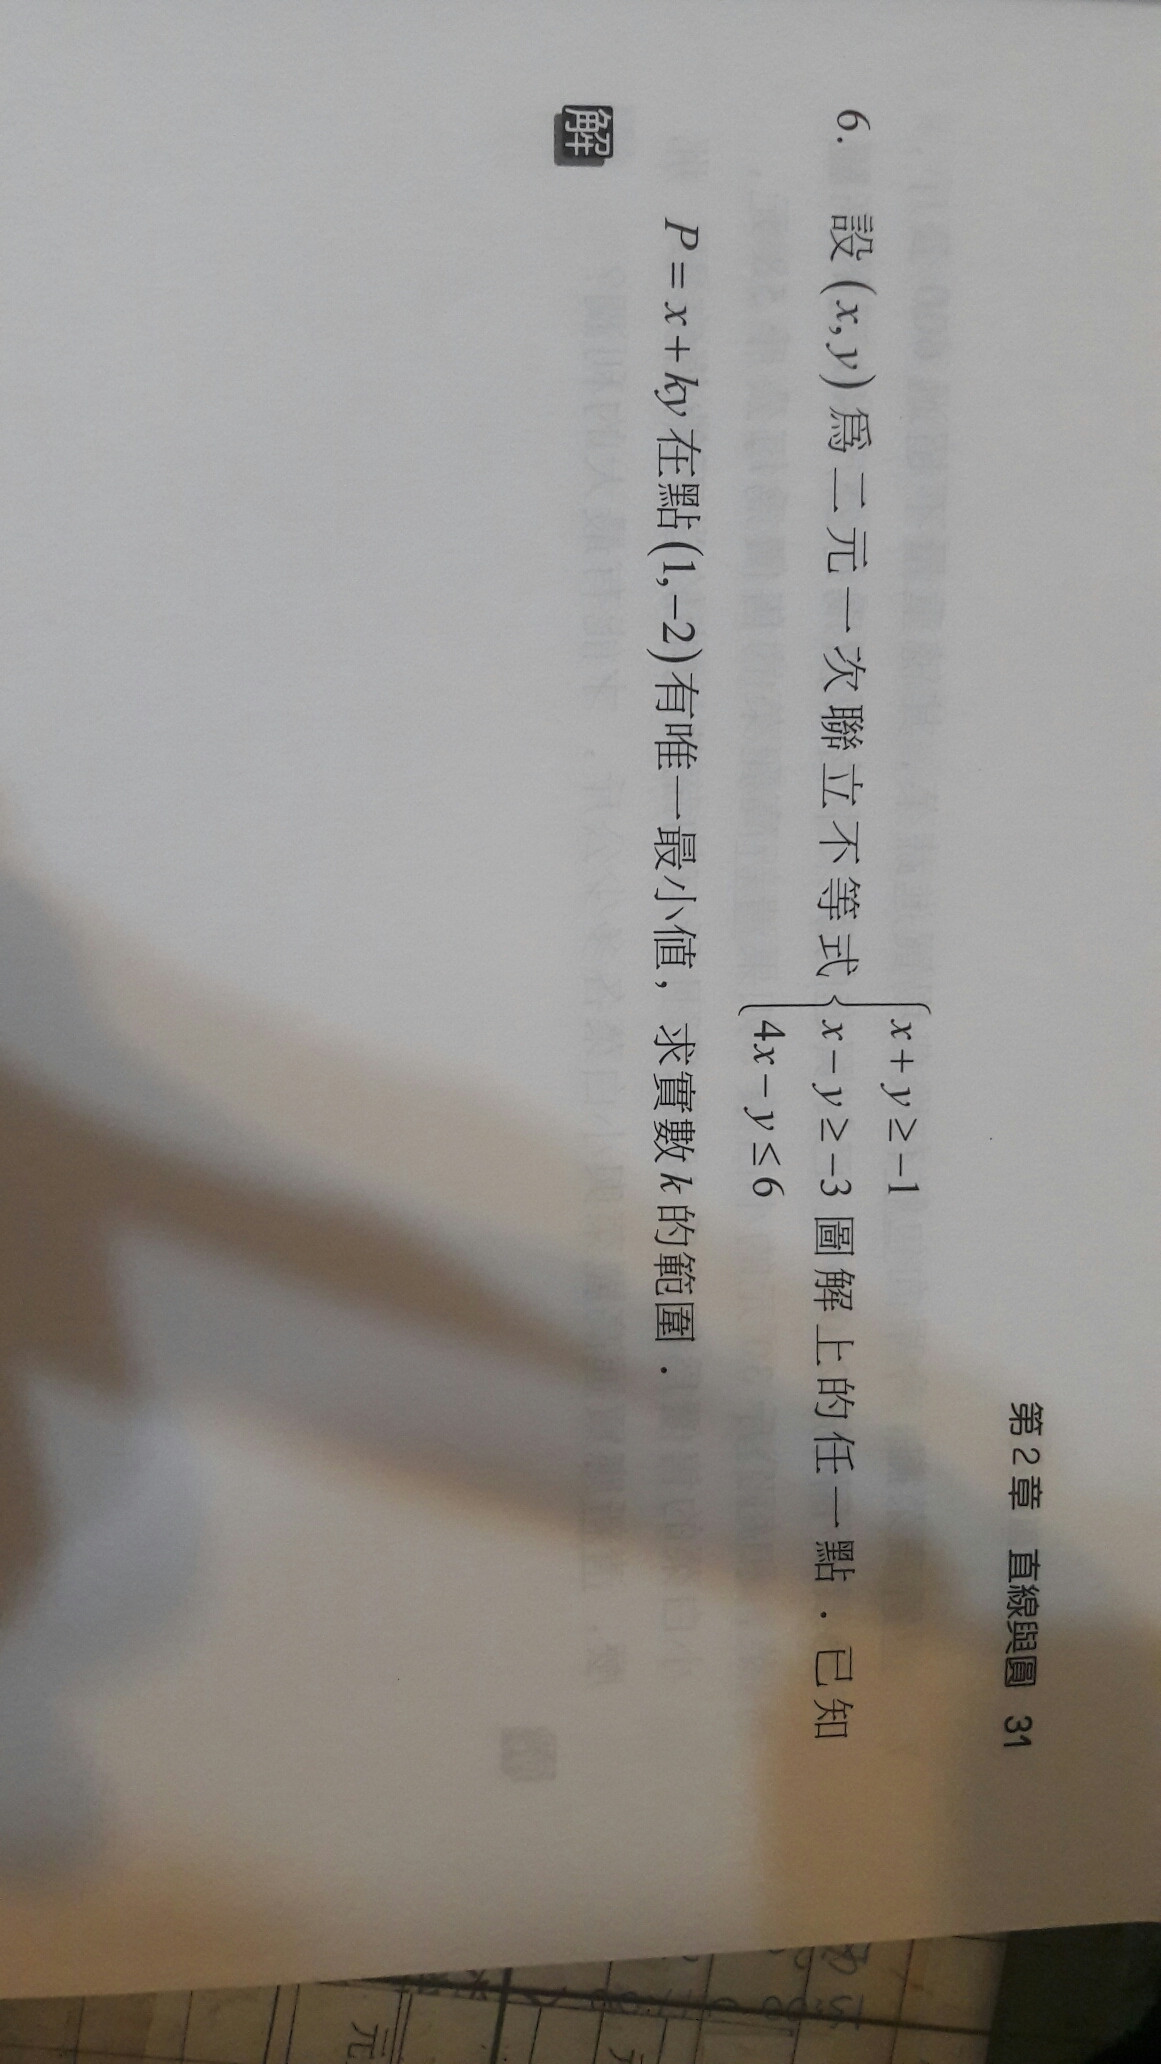 第2章 直線與圓 31
6. 設(x,y)為二元一次聯立不等式{x+y≥-1
x-y≥-3 圖解上的任一點．已知
4x-y≤6
P=x+ky在點(1,-2)有唯一最小值，求實數k的範圍．
解
元